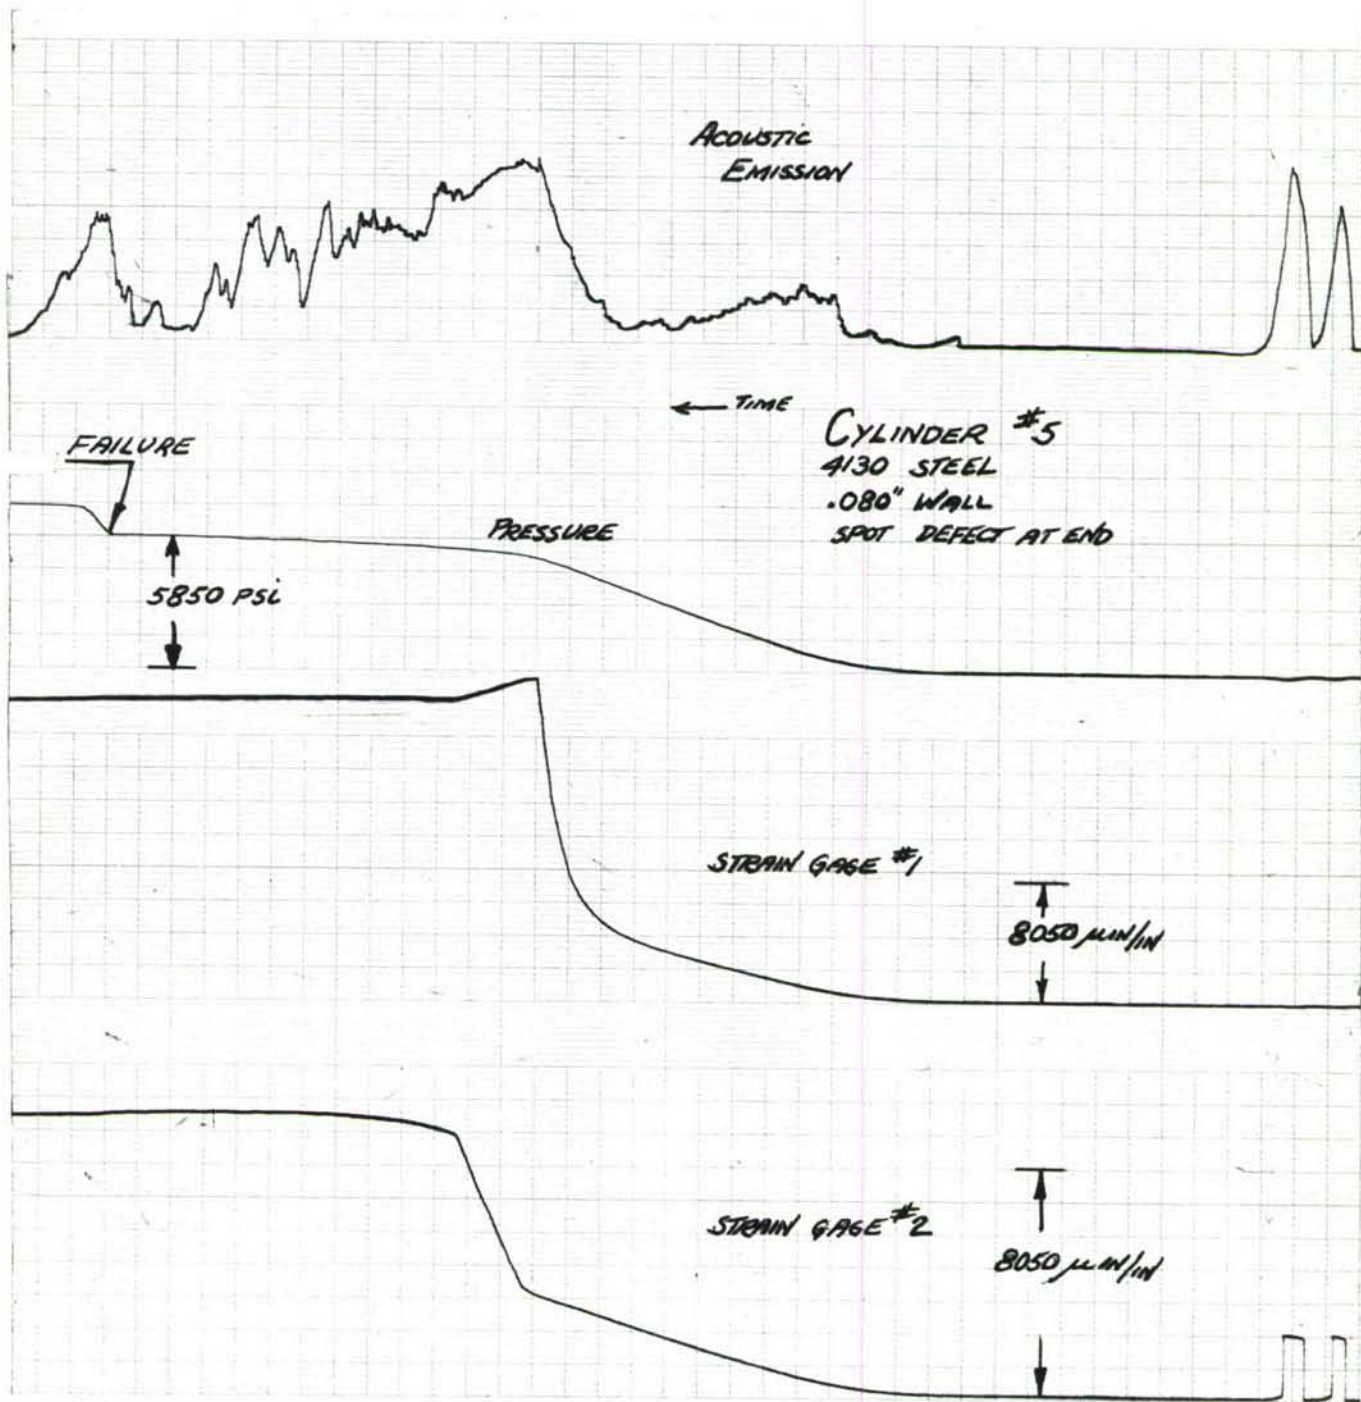 ACOUSTIC
EMISSION
← TIME
CYLINDER #5
4130 STEEL
.080" WALL
SPOT DEFECT AT END
FAILURE
PRESSURE
5850 PSi
STRAIN GAGE #1
8050 μIN/IN
STRAIN GAGE #2
8050 μIN/IN